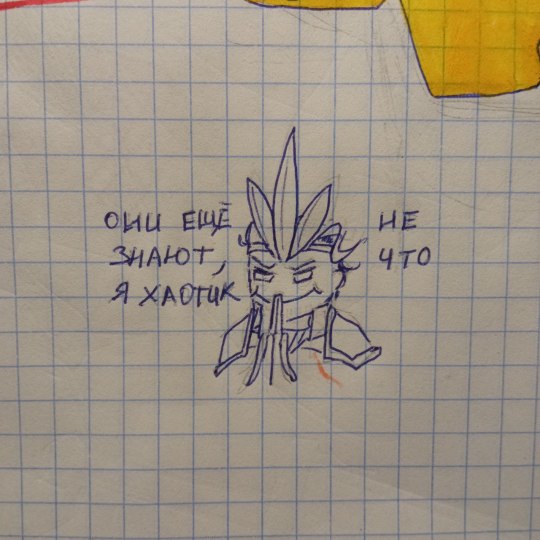 ОНИ ЕЩЁ НЕ
ЗНАЮТ, ЧТО
Я ХАОТИК